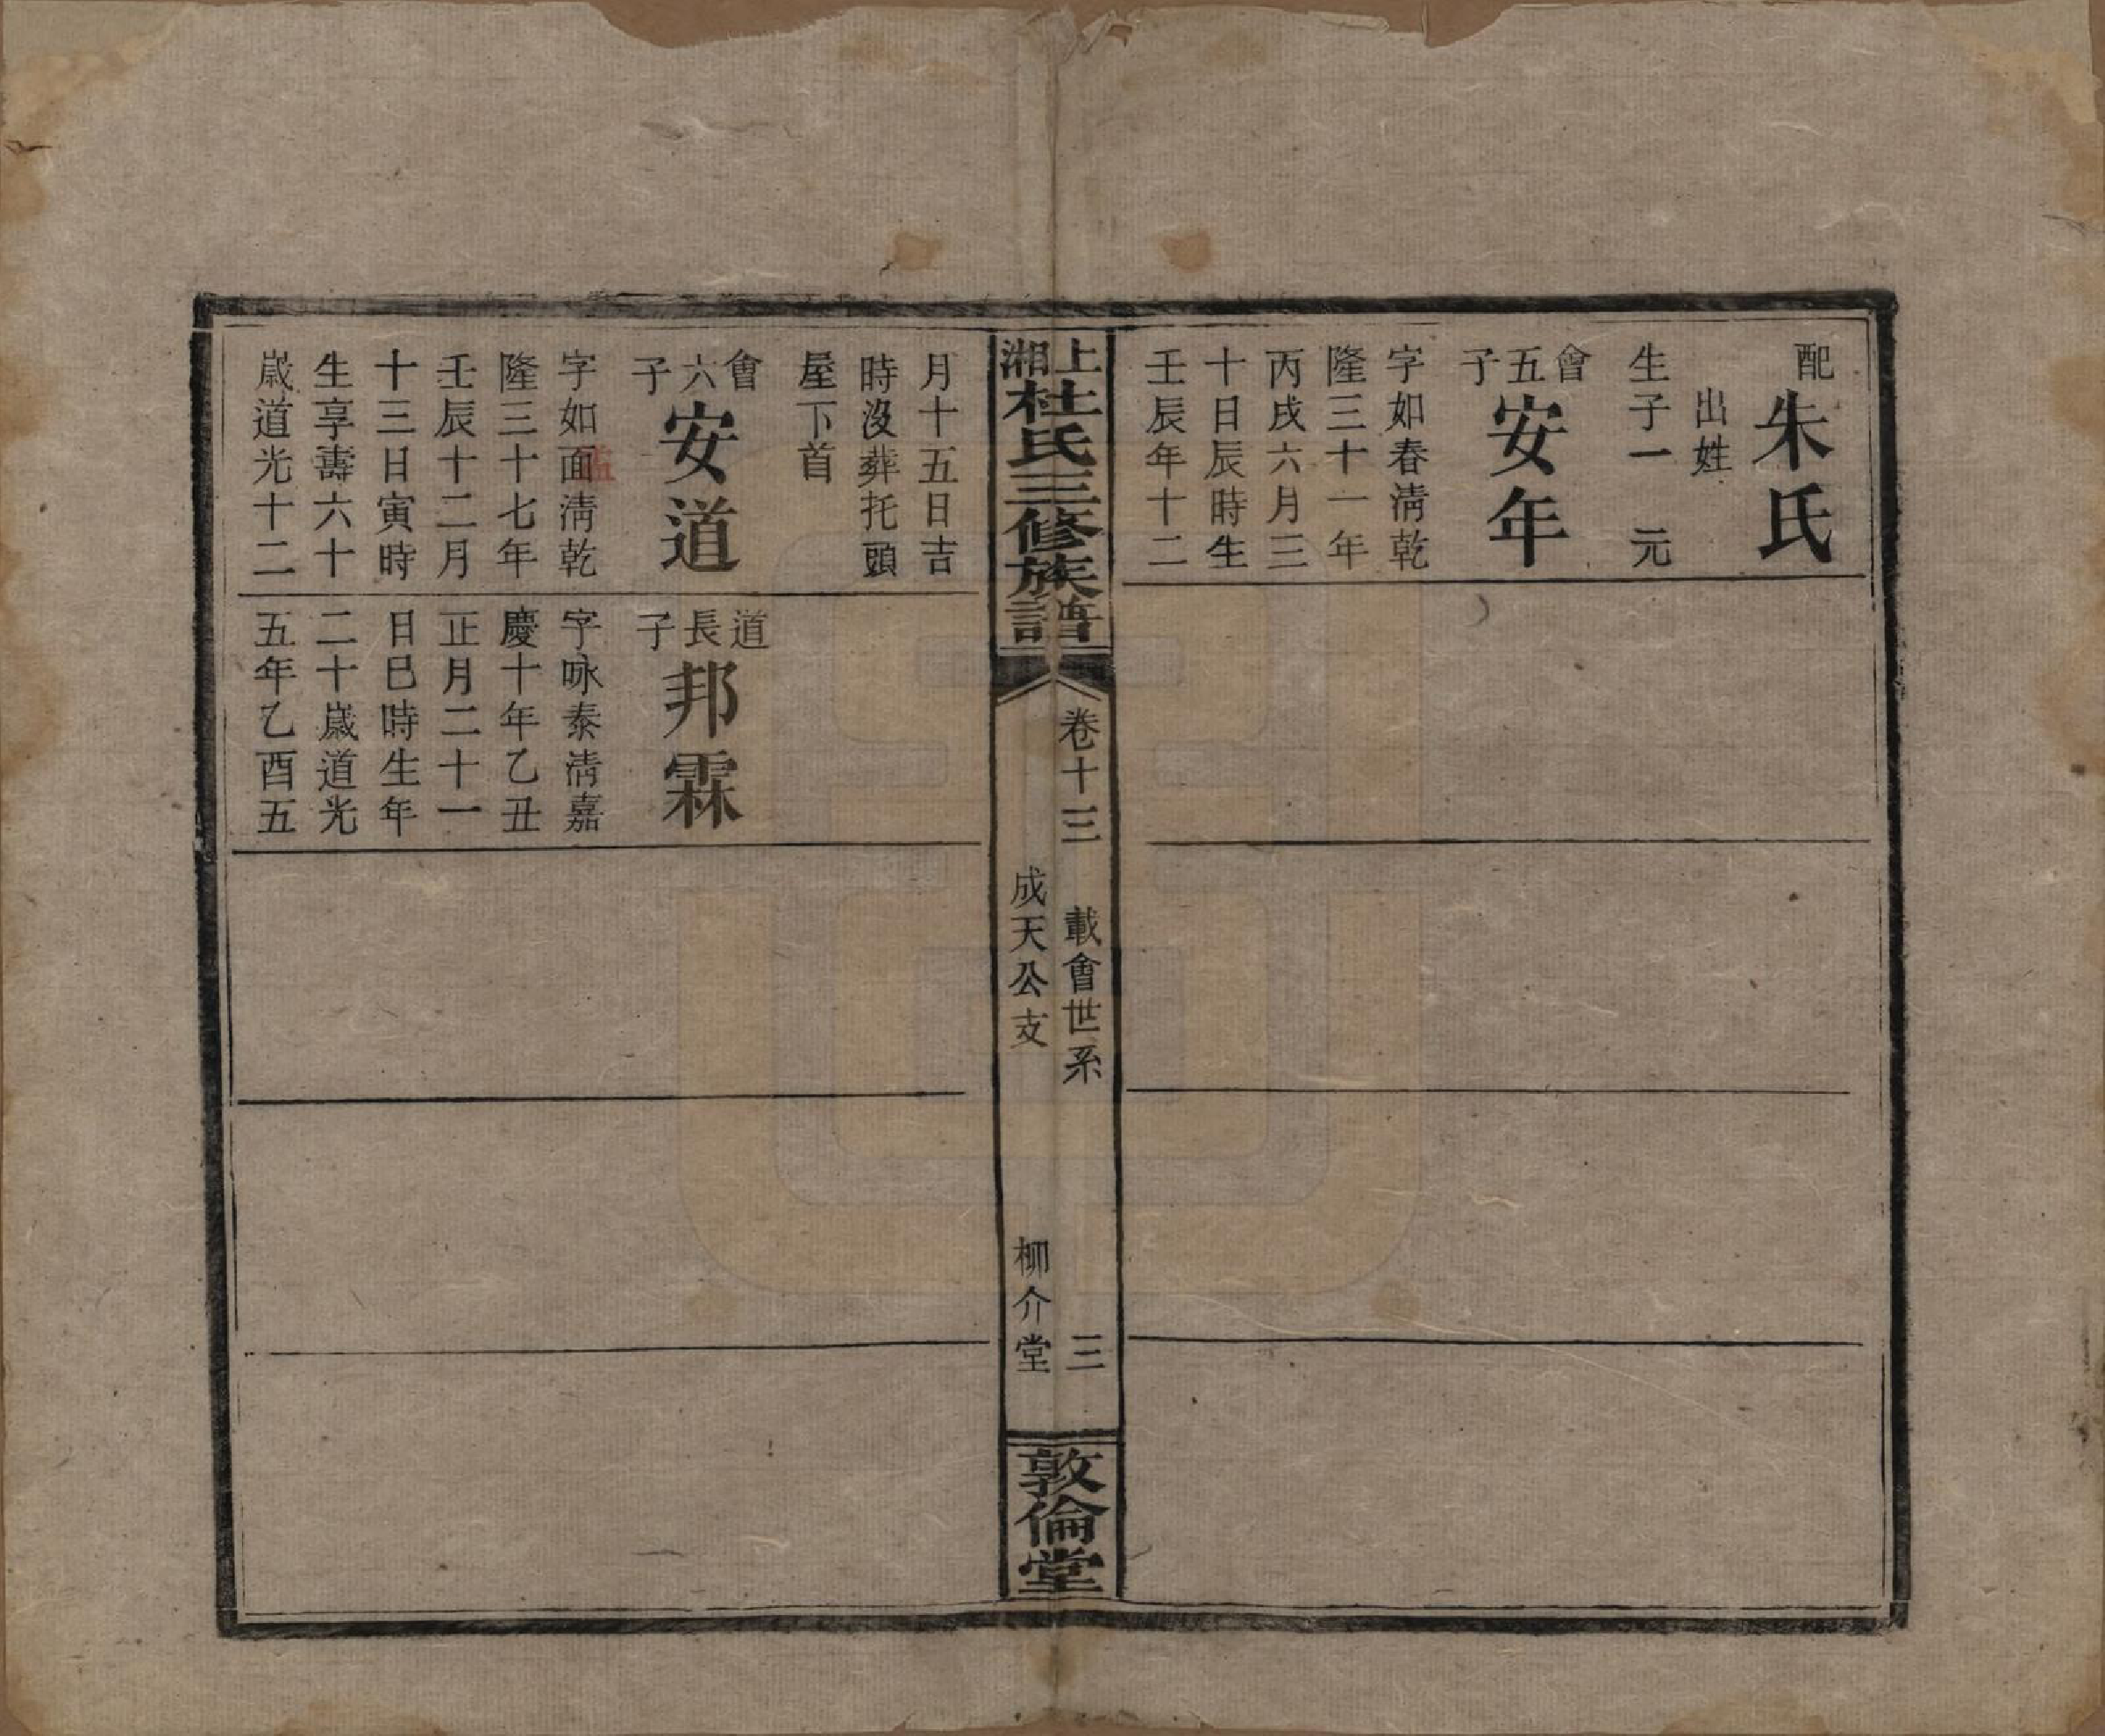 配
朱氏
出姓
生子一 元
會五子
安年
字如春淸乾
隆三十一年
丙戌六月三
十日辰時生
壬辰年十二
上湘杜氏三修族譜
卷十三 載會世系 三
成天公支 柳介堂
敦倫堂
月十五日吉
時沒葬托頭
屋下首
會六子
安道
字如面淸乾
隆三十七年
壬辰十二月
十三日寅時
生享壽六十
嵗道光十二
道長子
邦霖
字咏泰淸嘉
慶十年乙丑
正月二十一
日巳時生年
二十嵗道光
五年乙酉五